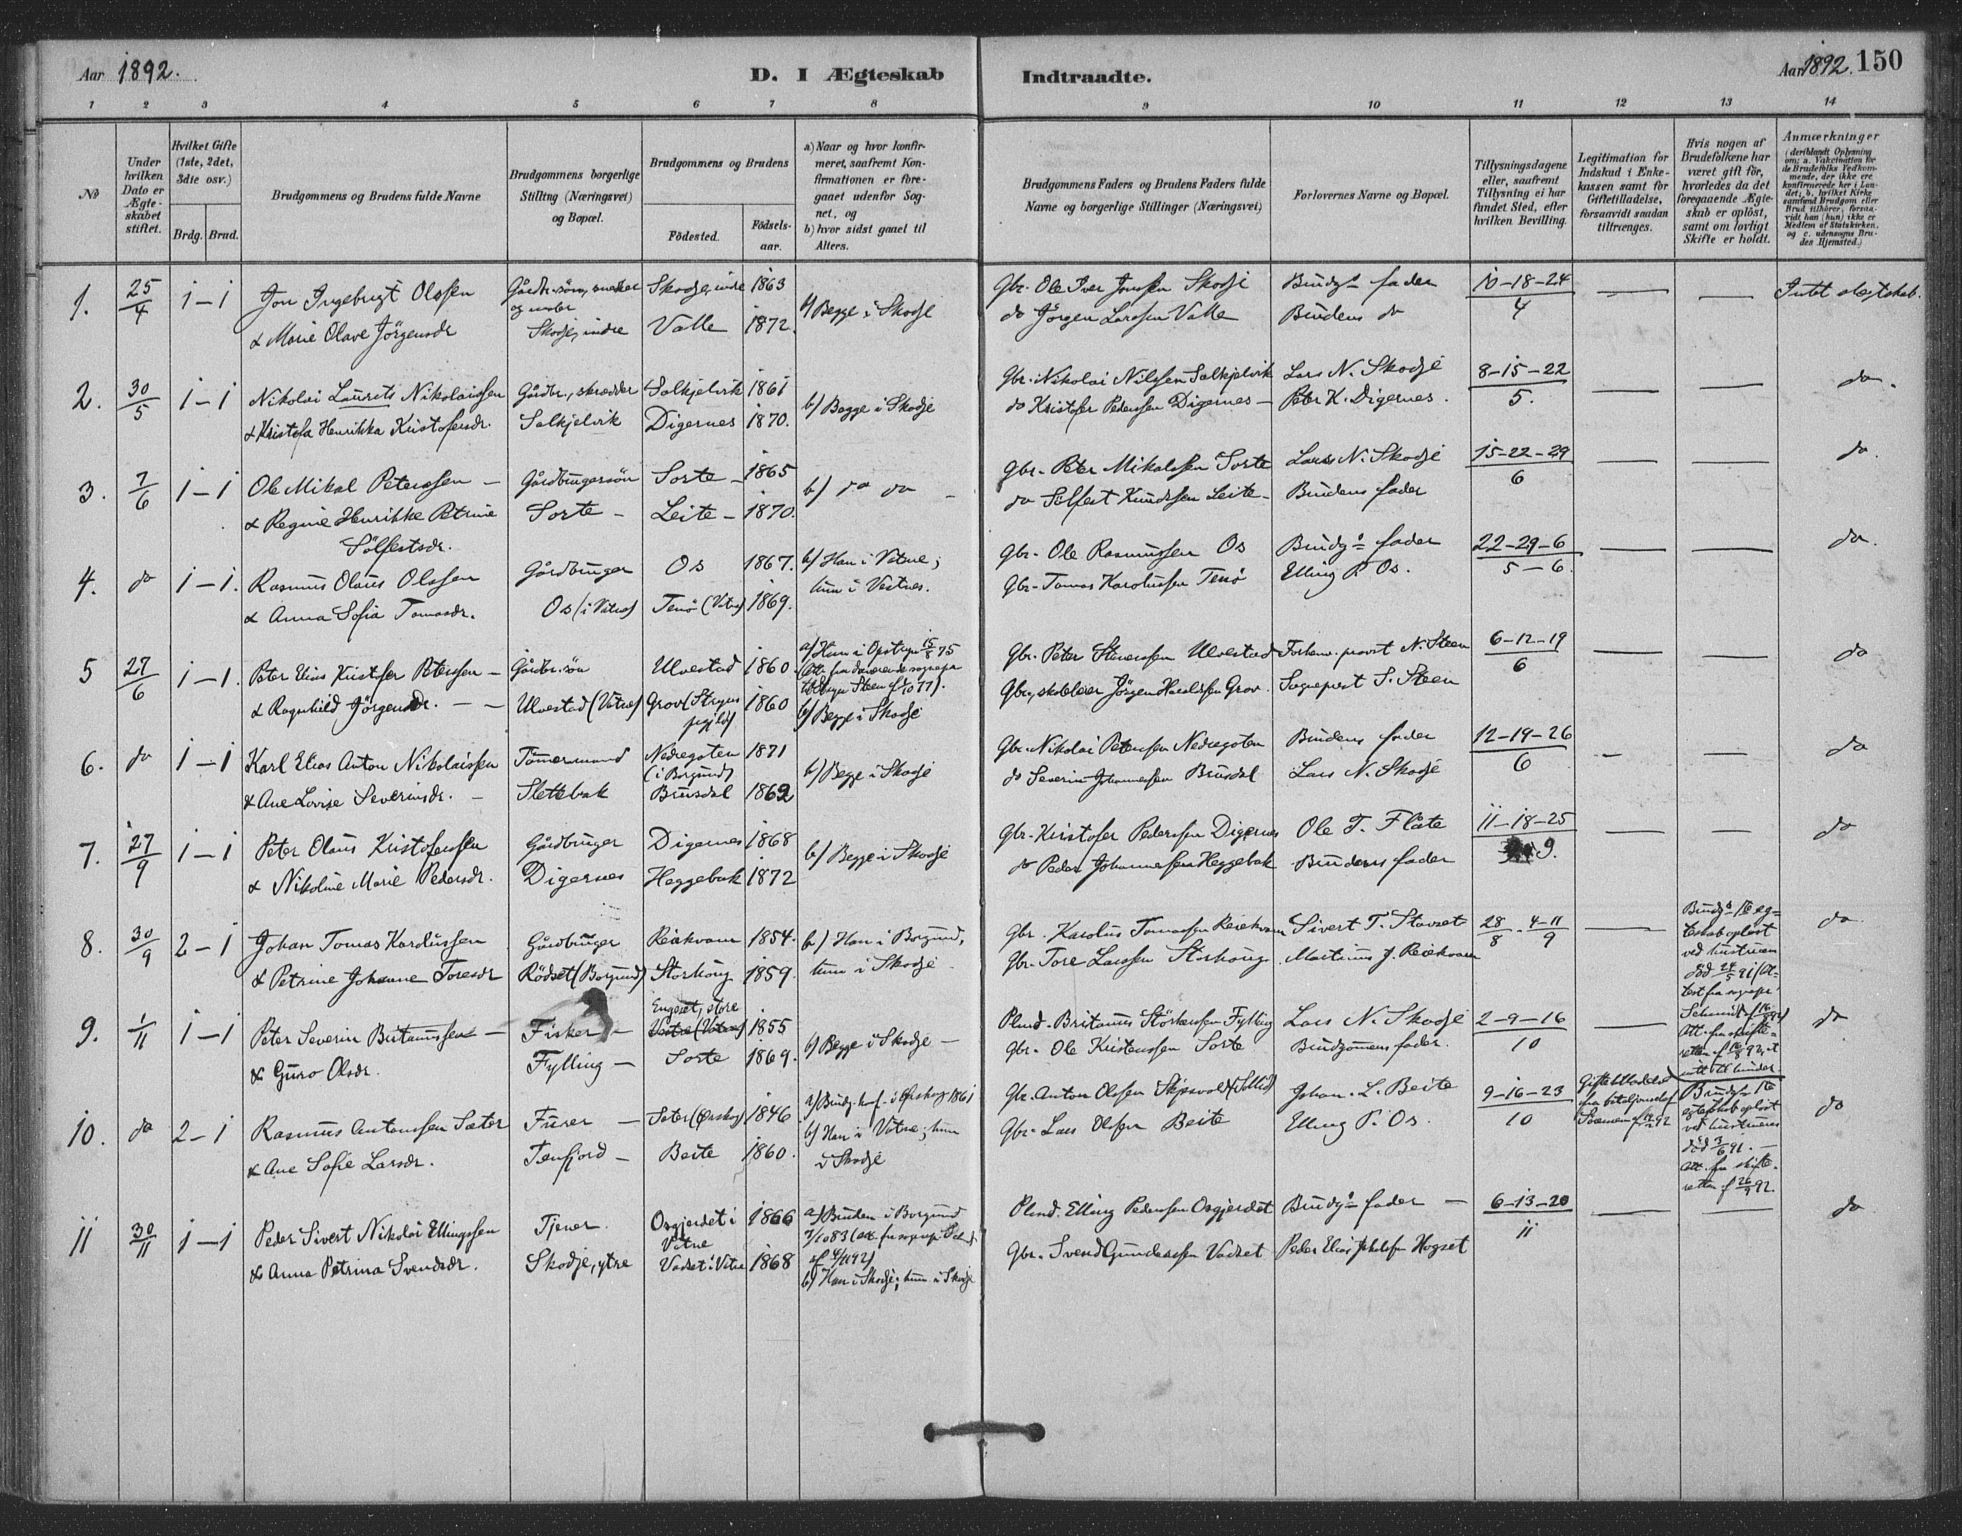 Aar 1892.
D. I Ægteskab Indtraadte.
Aar 1892. 150
1 2 3 4 5 6 7 8 9 10 11 12 13 14
No
Under hvilken Dato er Ægteskabet stiftet.
Hvilket Gifte (1ste, 2det, 3die osv.)
Brdg. Brud.
Brudgommens og Brudens fulde Navne
Brudgommens borgerlige Stilling (Næringsvei) og Bopæl.
Brudgommens og Brudens
Fødested.
Fødselsaar.
a) Naar og hvor konfirmeret, saafremt Konfirmationen er foregaaet udenfor Sognet, og
b) hvor sidst gaaet til Alters.
Brudgommens Faders og Brudens Faders fulde Navne og borgerlige Stillinger (Næringsvei)
Forlovernes Navne og Bopæl.
Tillysningsdagene eller, saafremt Tillysning ei har fundet Sted, efter hvilken Bevilling.
Legitimation for Indskud i Enkekassen samt for Giftetilladelse, forsaavidt saadan tiltrænges.
Hvis nogen af Brudefolkene har været gift før, hvorledes da det foregaaende Ægteskab er opløst, samt om lovligt Skifte er holdt.
Anmærkninger
(deriblandt Oplysning om: a. Vakcination for de Brudefolks Vedkommende, der ikke ere konfirmerede her i Landet; b. hvilket Kirkesamfund Brudgom eller Brud tilhører, forsaavidt han (hun) ikke er Medlem af Statskirken, og c. udensogns Brudes Hjemsted.)
1. 25/4 1 – 1 Jon Ingebrigt Olssen Gårdbr.søn, snekker og maler Skodje, indre 1863 b) Begge i Skodje Gbr. Ole Iver Jonssen Skodje Brudgs fader 10-18-24 — — Intet slegtskab.
& Marie Olave Jörgensdr Skodje, indre Valle 1872. do Jörgen Larssen Valle Brudens do 4
2. 30/5 1 – 1 Nikolai Laurits Nikolaissen Gårdbr., skredder Solkjelvik 1861 b) Begge i Skodje Gbr. Nikolai Nilssen Solkjelvik Lars N. Skodje 8-15-22 — — do.
& Kristofa Henrikka Kristofersdr. Solkjelvik Digernes 1870. do Kristofer Pederssen Digernes — Peter K. Digernes. 5.
3. 7/6 1 – 1 Ole Mikal Peterssen — Gårdbrugersön Sorte — 1865 b) do do — Gbr. Peter Mikalssen Sorte Lars N. Skodje 15-22-29 — — do.
& Regine Henrikke Petrine Sorte — Leite — 1870. do Sölfest Knudssen Leite — Brudens fader 6
Sölfestsdr.
4. do 1 – 1. Rasmus Olaus Olssen Gårdbruger Os 1867. b) Han i Vatne; Gbr. Ole Rasmussen Os Brudgs fader 22-29-6 — — do.
& Anna Sofia Tomasdr. Os (i Vatne) Tenö (Vatne) 1869. hun i Vestnes. Gbr. Tomas Karolussen Tenö Elling P. Os. 5 – 6.
5 27/6 1 – 1. Peter Elias Kristofer Peterssen — Gårdbr.sön Ulvestad 1860. a) Hun i Opstryn 15/8 75 Gbr. Peter Ulvestad N. Steen 6-12-19 — — do
& Ragnhild Jörgensdr. — — Ulvestad (Vatne) Grov (Stryns prgjld) 1860 b) Begge i Skodje Gbr., Jörgen Grov. Sogneprest S. Steen 6
6. do 1 – 1 Karl Elias Anton Nikolaissen Tömmermand Nedregoten (i Borgund) 1871 b) Begge i Skodje Gbr. Nikolai Peterssen Nedregoten Brudens fader 12-19-26 — — do
& Ane Lovise Severinsdr. — Slettebak Brusdal 1869 do Severin Johannessen Brusdal Lars N. Skodje 6
7. 27/9 1 – 1 Peter Olaus Kristoferssen Gårdbruger Digernes 1868 b) Begge i Skodje Gbr. Kristofer Pederssen Digernes Ole T. Flåte 11-18-25 — — do
& Nikoline Marie Pedersdr. Digernes Heggebak 1872 do Peder Johannessen Heggebak Brudens fader 9.
8. 30/9 2 – 1 Johan Tomas Karolussen Gårdbruger Reiakvam 1854. b) Han i Borgund, Gbr. Karolus Tomassen Reiakvam Sivert T. Stavset 28/8 - 4-11/9 — Brudgs 1e egteskab opløst ved hustruen død 24/5 91 do
& Petrine Johanne Toresdr Rödset (Borgund) Storhaug 1859. hun i Skodje. Gbr. Tore Larssen Storhaug Martinus J. Reiakvam
9. 1/11 1 – 1 Peter Severin Britanussen — Fisker — Engeset, store 1855 b) Begge i Skodje — Plmd. Britanus Fylling Lars N. Skodje 2-9-16 — do
& Guro Olsdr. Fylling — Sorte 1869. Gbr. Ole Kristenssen Sorte Brudgommens fader. 10
10. do 2 – 1 Rasmus Antonssen Sæter Furer — Sæter (Ørskog) 1846 a) Brudg. konf. i Ørskog 1861 Gbr. Anton Olssen Johan L. Beite 9-16-23 Brudgs 1e egteskab opløst ved hustruens död 3/6 91. do
& Ane Sofie Larsdr. Tenfjord — Beite 1860. b) Han i Vatne; hun i Skodje Gbr. Lars Beite Elling P. Os. 10 Att. fra skifteretten af 26/9 92.
11 30/11 1 – 1 Peder Sivert Nikolai Ellingssen Tjener. Osgjerdet i Vatne 1866 a) Bruden i Borgund Plmd. Elling Pederssen Osgjerdet Brudgs fader — 6-13-20 — — do
& Anna Petrina Svendsdr. Skodje, ytre Vadset i Vatne 1868 b) Han i Skodje; hun i Skodje Gbr. Svend Gunderssen Vadset Peder Elias Hogset 11